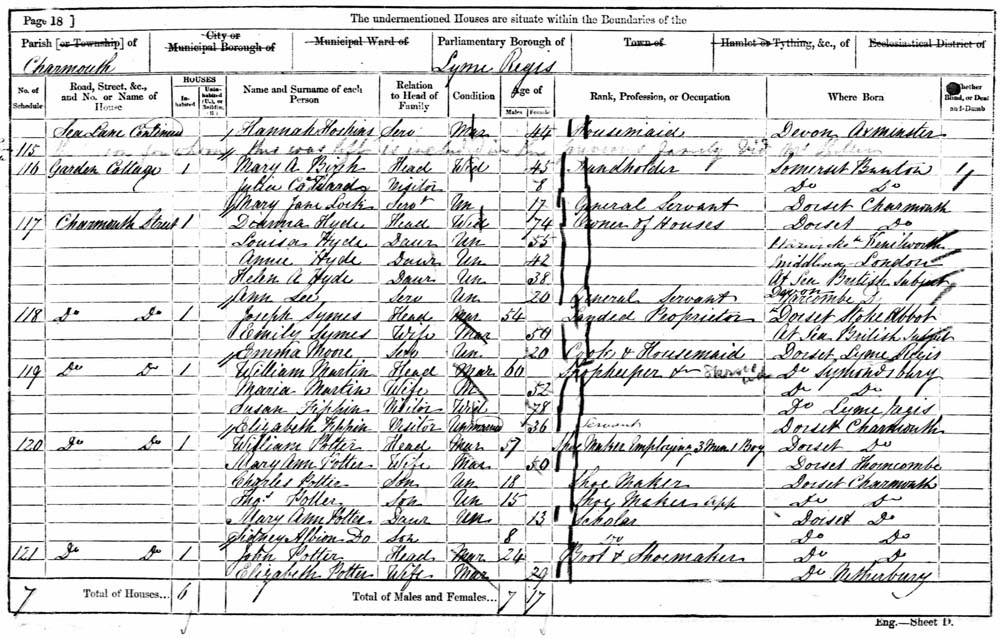 Page 18 ] The undermentioned Houses are situate within the Boundaries of the
Parish [or Township] of City or Municipal Borough of Municipal Ward of Parliamentary Borough of Town of Hamlet or Tything, &c., of Ecclesiastical District of
Charmouth Lyme Regis
No. of Schedule Road, Street, &c., and No. or Name of House HOUSES Inhabited Uninhabited (U.), or Building (B.) Name and Surname of each Person Relation to Head of Family Condition Age of Males Females Rank, Profession, or Occupation Where Born Whether Blind, or Deaf and-Dumb
Sea Lane Continued Hannah Hoskins Serv Mar 44 Housemaid Devon Axminster
115 this was left is included in the previous family
116 Garden Cottage 1 Mary A Birch Head Wid 45 Fundholder Somerset 1
Julia Ward Visitor 8 Do Do
Mary Jane Lock Servt Un 17 General Servant Dorset Charmouth
117 Charmouth Street 1 Hyde Head Wid 74 Owner of Houses Dorset Do
Louisa Hyde Daur Un 55 Kenilworth
Annie Hyde Daur Un 42 London
Helen A Hyde Daur Un 38 At Sea British Subject
Ann Lee Serv Un 20 General Servant Devon
118 Do Do 1 Joseph Symes Head Mar 54 Landed Proprietor Dorset Stoke Abbot
Emily Symes Wife Mar At Sea British Subject
Emma Moore Serv Un 20 Cook & Housemaid Dorset Lyme Regis
119 Do Do 1 William Martin Head Mar 60 Shopkeeper Do Symondsbury
Maria Martin Wife M 52 Do Do
Susan Visitor Wid 78 Do Lyme Regis
Elizabeth Visitor Unmarried 36 Servant Dorset Charmouth
120 Do Do 1 William Potter Head Mar 57 Shoe Maker Employing 3 Men 1 Boy Dorset Do
Mary Ann Potter Wife Mar 50 Dorset Thorncombe
Charles Potter Son Un 18 Shoe Maker Dorset Charmouth
Thos Potter Son Un 15 Shoe Maker app Do Do
Mary Ann Potter Daur Un 13 Scholar Dorset Do
Sidney Albion Do Son 8 Do Do Do
121 Do Do 1 John Potter Head Mar 24 Boot & Shoemaker Do Do
Elizabeth Potter Wife Mar 29 Do Netherbury
7 Total of Houses... 6 Total of Males and Females... 7 17
Eng.—Sheet D.